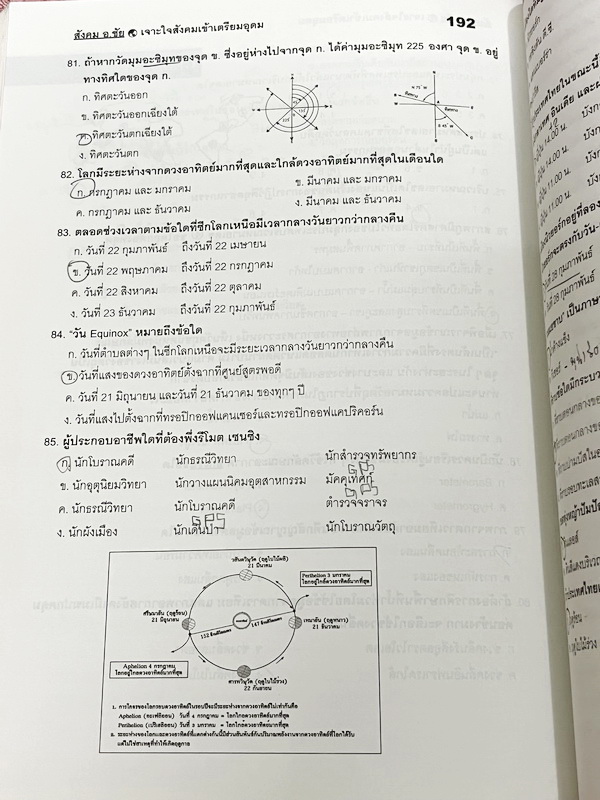 สังคม อ.ชัย เจาะใจสังคมเข้าเตรียมอุดม
192
81. ถ้าหากวัดมุมอะซิมุทของจุด ข. ซึ่งอยู่ห่างไปจากจุด ก. ได้ค่ามุมอะซิมุท 225 องศา จุด ข. อยู่
ทางทิศใดของจุด ก.
ก. ทิศตะวันออก
ข. ทิศตะวันออกเฉียงใต้
ค. ทิศตะวันตกเฉียงใต้
ง. ทิศตะวันตก
82. โลกมีระยะห่างจากดวงอาทิตย์มากที่สุดและใกล้ดวงอาทิตย์มากที่สุดในเดือนใด
ก. กรกฎาคม และ มกราคม ข. มีนาคม และ มกราคม
ค. กรกฎาคม และ ธันวาคม ง. มีนาคม และ ธันวาคม
83. ตลอดช่วงเวลาตามข้อใดที่ซีกโลกเหนือมีเวลากลางวันยาวกว่ากลางคืน
ก. วันที่ 22 กุมภาพันธ์ ถึงวันที่ 22 เมษายน
ข. วันที่ 22 พฤษภาคม ถึงวันที่ 22 กรกฎาคม
ค. วันที่ 22 สิงหาคม ถึงวันที่ 22 ตุลาคม
ง. วันที่ 23 ธันวาคม ถึงวันที่ 22 กุมภาพันธ์
84. "วัน Equinox" หมายถึงข้อใด
ก. วันที่ตำบลต่างๆ ในซีกโลกเหนือจะมีระยะเวลากลางวันยาวกว่ากลางคืน
ข. วันที่แสงของดวงอาทิตย์ตั้งฉากที่ศูนย์สูตรพอดี
ค. วันที่ 21 มิถุนายน และวันที่ 21 ธันวาคม ของทุกๆ ปี
ง. วันที่แสงไปตั้งฉากที่ทรอปิกออฟแคนเซอร์และทรอปิกออฟแคปริคอร์น
85. ผู้ประกอบอาชีพใดที่ต้องพึ่งรีโมต เซนซิง
ก. นักโบราณคดี นักธรณีวิทยา นักสำรวจทรัพยากร
GPS
ข. นักอุตุนิยมวิทยา นักวางแผนนิคมอุตสาหกรรม มัคคุเทศก์
GPS
ค. นักธรณีวิทยา นักโบราณคดี ตำรวจจราจร
GPS
ง. นักผังเมือง นักเดินป่า นักโบราณวัตถุ
วสันตวิษุวัต (ฤดูใบไม้ผลิ)
21 มีนาคม
Perihelion 3 มกราคม
โลกอยู่ใกล้ดวงอาทิตย์มากที่สุด
ครีษมายัน (ฤดูร้อน)
21 มิถุนายน
เหมายัน (ฤดูหนาว)
21 ธันวาคม
152 ล้านกิโลเมตร
147 ล้านกิโลเมตร
Aphelion 4 กรกฎาคม
โลกอยู่ไกลดวงอาทิตย์มากที่สุด
ศารทวิษุวัต (ฤดูใบไม้ร่วง)
22 กันยายน
1. การโคจรของโลกรอบดวงอาทิตย์ในรอบปีจะมีระยะห่างจากดวงอาทิตย์ไม่เท่ากันคือ
Aphelion (อะเฟลิออน) วันที่ 4 กรกฎาคม = โลกไกลดวงอาทิตย์มากที่สุด
Perihelion (เปริเฮลิออน) วันที่ 3 มกราคม = โลกใกล้ดวงอาทิตย์มากที่สุด
2. ระยะห่างของโลกและดวงอาทิตย์ที่แตกต่างกันนี้มีส่วนสัมพันธ์กับปริมาณพลังงานจากดวงอาทิตย์ที่โลกได้รับ
แต่ไม่ใช่สาเหตุที่ทำให้เกิดฤดูกาล